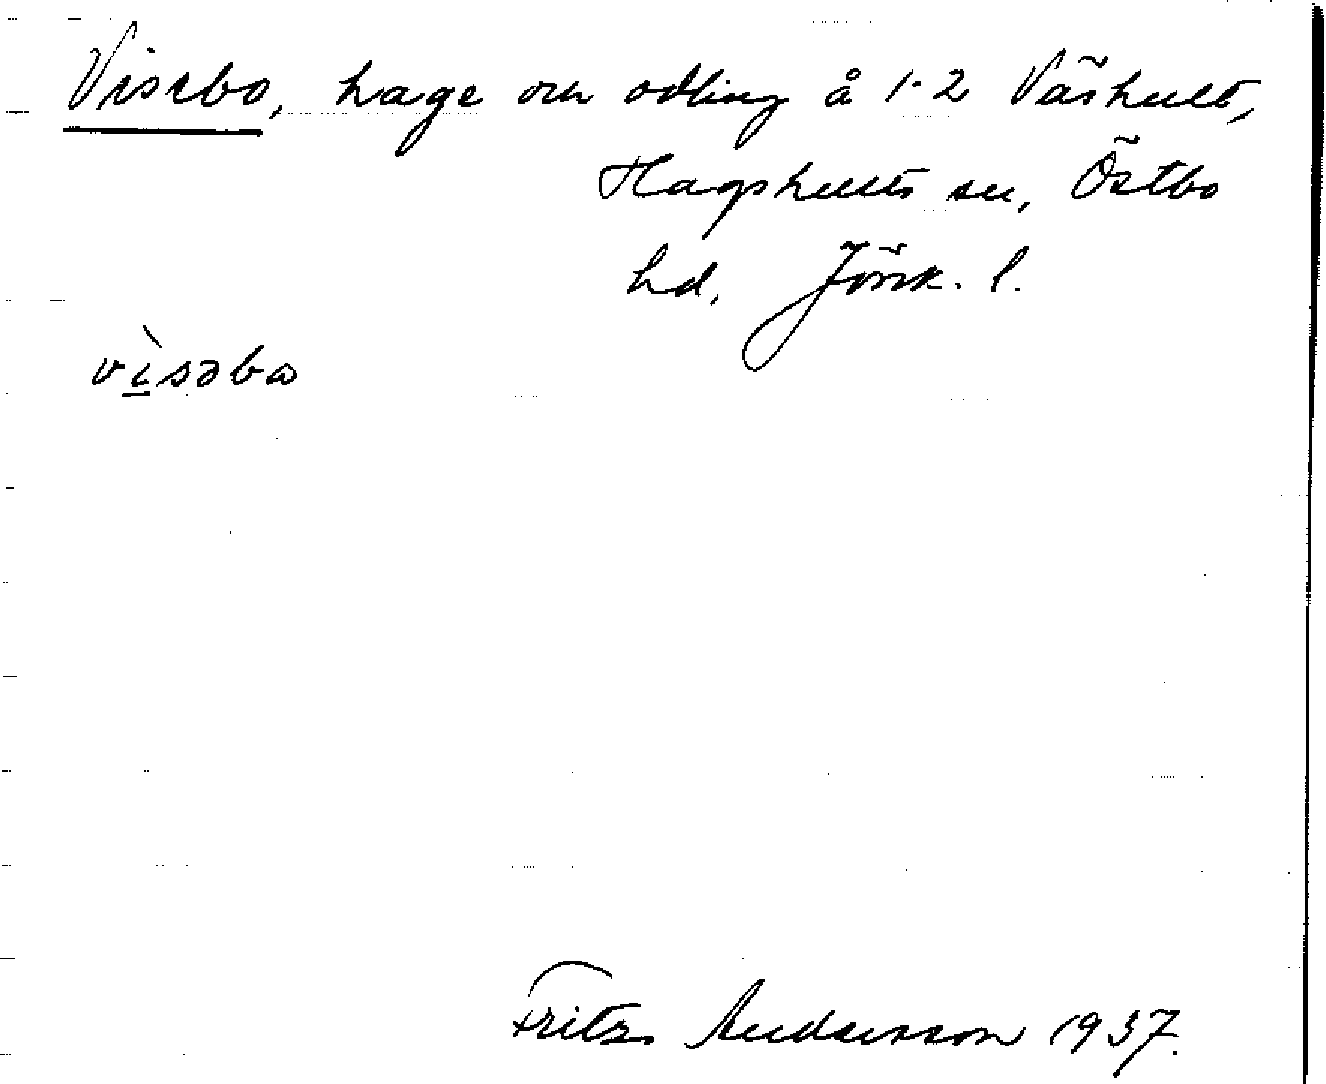 Visebo, hage och odling å 1-2 Väshult,
Hagshults sn, Östbo
hd, Jönk. l.
vìsəbω
Fritz Andersson 1937.